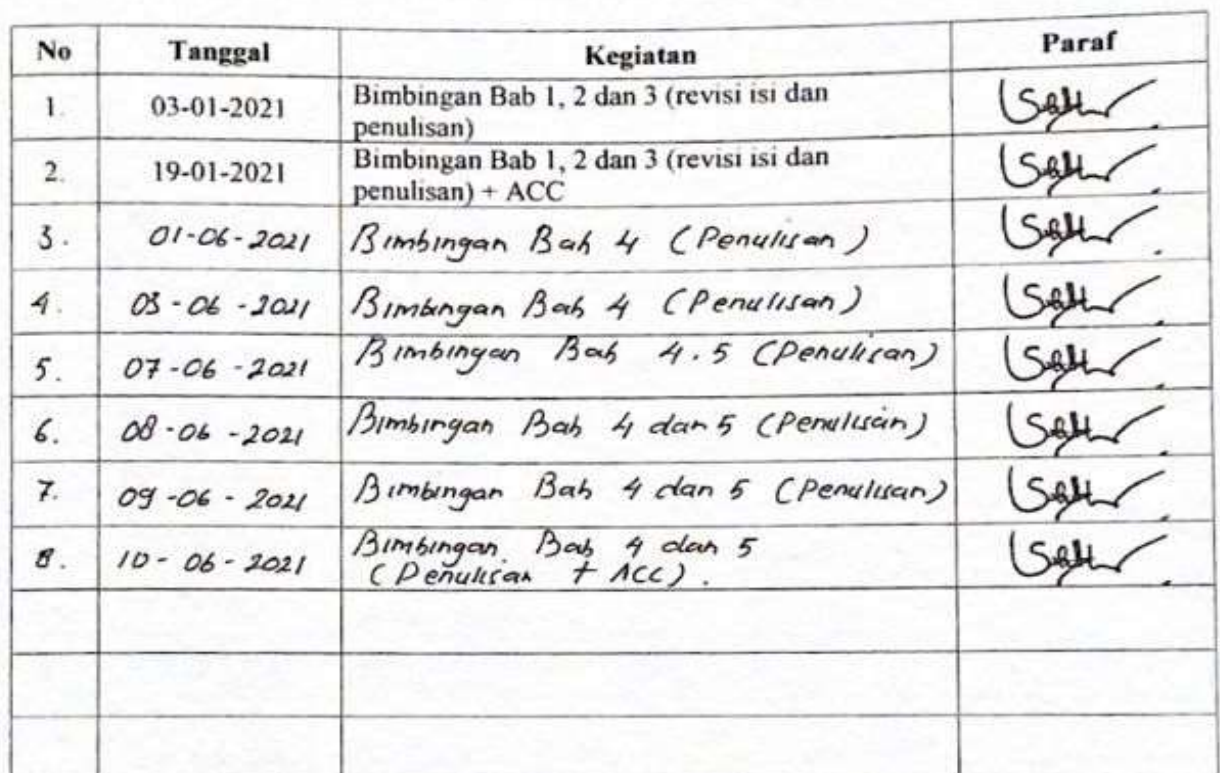 No Tanggal Kegiatan Paraf
1. 03-01-2021 Bimbingan Bab 1, 2 dan 3 (revisi isi dan
penulisan)
2. 19-01-2021 Bimbingan Bab 1, 2 dan 3 (revisi isi dan
penulisan) + ACC
3. 01-06-2021 Bimbingan Bab 4 (Penulisan)
4. 03-06-2021 Bimbingan Bab 4 (Penulisan)
5. 07-06-2021 Bimbingan Bab 4.5 (Penulisan)
6. 08-06-2021 Bimbingan Bab 4 dan 5 (Penulisan)
7. 09-06-2021 Bimbingan Bab 4 dan 5 (Penulisan)
8. 10-06-2021 Bimbingan Bab 4 dan 5
(Penulisan + ACC).